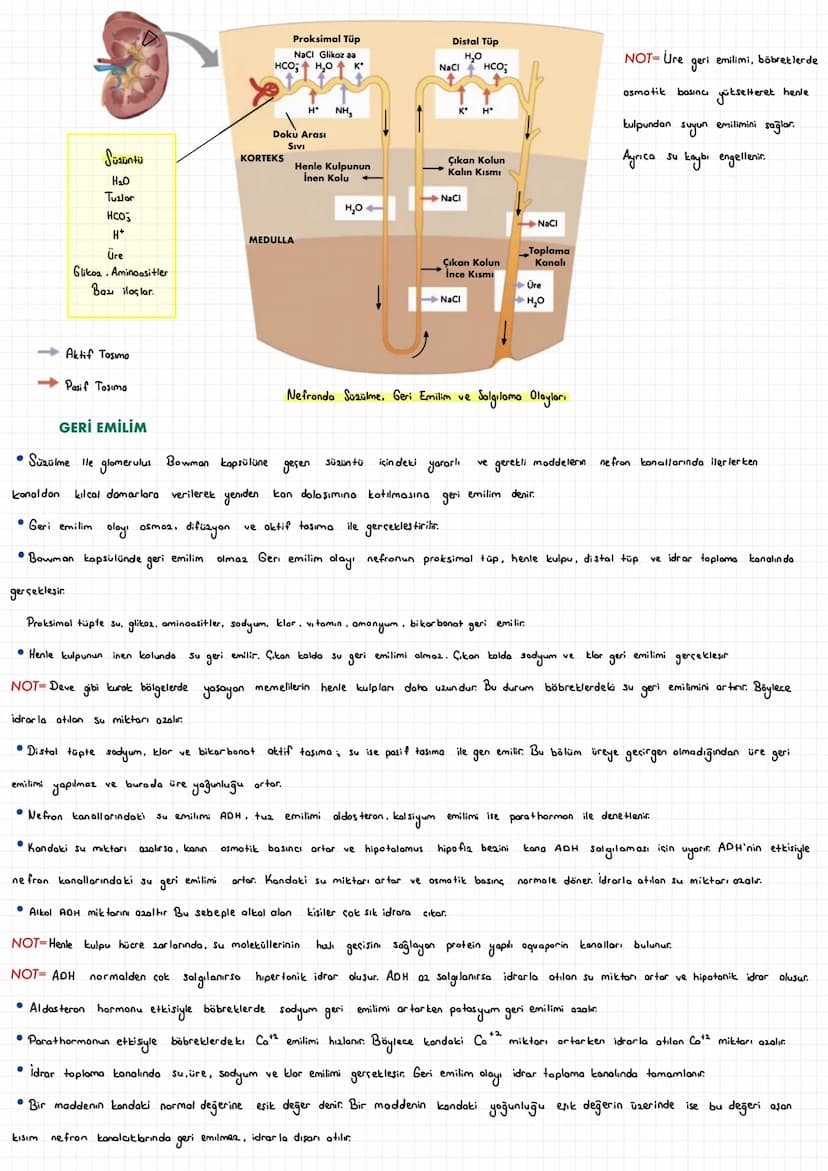 Proksimal Tüp
NaCl Glikoz aa
HCO₃⁻ H₂O K⁺
H⁺ NH₃
Doku Arası
Sıvı
Distal Tüp
H₂O
NaCl HCO₃⁻
K⁺ H⁺
NOT= Üre geri emilimi, böbreklerde
osmotik basıncı yükselterek henle
kulpundan suyun emilimini sağlar.
Ayrıca su kaybı engellenir.
Süzüntü
H₂O
Tuzlar
HCO₃⁻
H⁺
Üre
Glikoz, Aminoasitler
Bazı ilaçlar.
KORTEKS
Henle Kulpunun
İnen Kolu
H₂O
MEDULLA
Çıkan Kolun
Kalın Kısmı
NaCl
Çıkan Kolun
İnce Kısmı
NaCl
NaCl
Toplama
Kanalı
Üre
H₂O
Aktif Taşıma
Pasif Taşıma
Nefronda Süzülme, Geri Emilim ve Salgılama Olayları
GERİ EMİLİM
• Süzülme ile glomerulus Bowman kapsülüne geçen süzüntü içindeki yararlı ve gerekli maddelerin nefron kanallarında ilerlerken
kanaldan kılcal damarlara verilerek yeniden kan dolaşımına katılmasına geri emilim denir.
• Geri emilim olayı osmoz, difüzyon ve aktif taşıma ile gerçekleştirilir.
• Bowman kapsülünde geri emilim olmaz Geri emilim olayı nefronun proksimal tüp, henle kulpu, distal tüp ve idrar toplama kanalında
gerçekleşir.
Proksimal tüpte su, glikoz, aminoasitler, sodyum, klor, vitamin, amonyum, bikarbonat geri emilir.
• Henle kulpunun inen kolunda su geri emilir. Çıkan kolda su geri emilimi olmaz. Çıkan kolda sodyum ve klor geri emilimi gerçekleşir
NOT= Deve gibi kurak bölgelerde yaşayan memelilerin henle kulpları daha uzundur. Bu durum böbreklerdeki su geri emilimini artırır. Böylece
idrarla atılan su miktarı azalır.
• Distal tüpte sodyum, klor ve bikarbonat aktif taşıma; su ise pasif taşıma ile geri emilir. Bu bölüm üreye geçirgen olmadığından üre geri
emilimi yapılmaz ve burada üre yoğunluğu artar.
• Nefron kanallarındaki su emilimi ADH, tuz emilimi aldosteron, kalsiyum emilimi ise parathormon ile denetlenir.
• Kandaki su miktarı azalırsa, kanın osmotik basıncı artar ve hipotalamus hipofiz bezini kana ADH salgılaması için uyarır. ADH'nin etkisiyle
nefron kanallarındaki su geri emilimi artar. Kandaki su miktarı artar ve osmotik basınç normale döner. İdrarla atılan su miktarı azalır.
• Alkol ADH miktarını azaltır Bu sebeple alkol alan kişiler çok sık idrara çıkar.
NOT= Henle kulpu hücre zarlarında, su moleküllerinin hızlı geçişini sağlayan protein yapılı aquaporin kanalları bulunur.
NOT= ADH normalden çok salgılanırsa hipertonik idrar oluşur. ADH az salgılanırsa idrarla atılan su miktarı artar ve hipotonik idrar oluşur.
• Aldosteron hormonu etkisiyle böbreklerde sodyum geri emilimi artarken potasyum geri emilimi azalır.
• Parathormonun etkisiyle böbreklerdeki Ca⁺² emilimi hızlanır. Böylece kandaki Ca⁺² miktarı artarken idrarla atılan Ca⁺² miktarı azalır.
• İdrar toplama kanalında su, üre, sodyum ve klor emilimi gerçekleşir. Geri emilim olayı idrar toplama kanalında tamamlanır.
• Bir maddenin kandaki normal değerine eşik değer denir. Bir maddenin kandaki yoğunluğu eşik değerin üzerinde ise bu değeri aşan
kısım nefron kanalcıklarında geri emilmez, idrarla dışarı atılır.